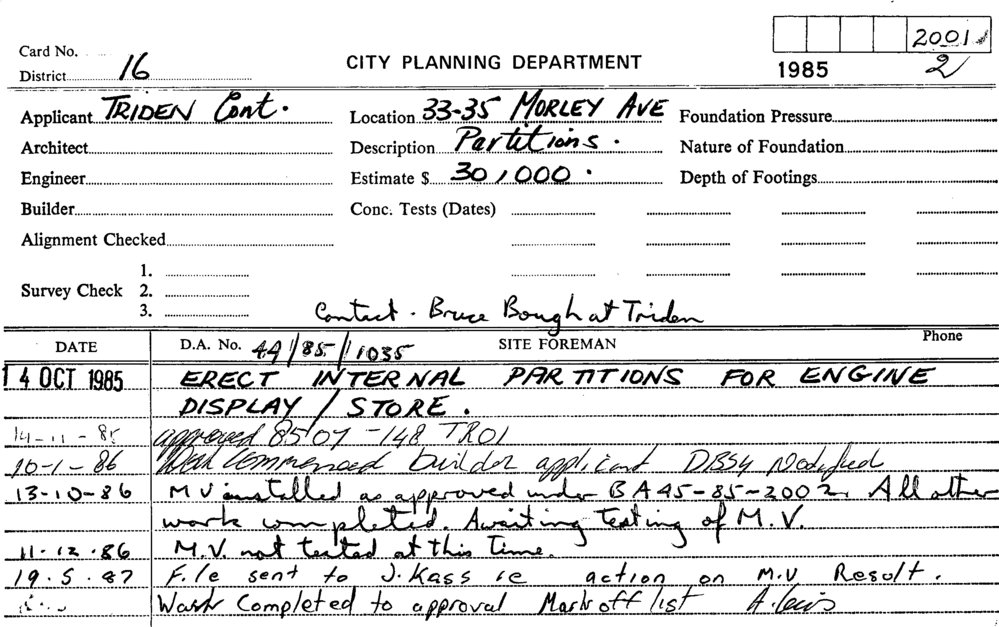 2001
Card No.
District 16
CITY PLANNING DEPARTMENT
1985 2
Applicant TRIDEN Cont. Location 33-35 MORLEY AVE Foundation Pressure
Architect Description Partitions. Nature of Foundation
Engineer Estimate $ 30,000. Depth of Footings
Builder Conc. Tests (Dates)
Alignment Checked
1.
Survey Check 2.
3.
Contact. Bruce Bough at Triden
DATE D.A. No. 44/85/1035 SITE FOREMAN Phone
14 OCT 1985 ERECT INTERNAL PARTITIONS FOR ENGINE
DISPLAY / STORE.
14-11-85 approved 8507-148 TR01
20-1-86 Work Commenced builder applicant
13-10-86 M V installed as approved under BA45-85-2002. All other
work completed. Awaiting Testing of M.V.
11.12.86 M.V. not tested at this time.
19.5.87 File sent to J. Kass re action on M.V Result.
Work Completed to approval Mark off list A. Lewis